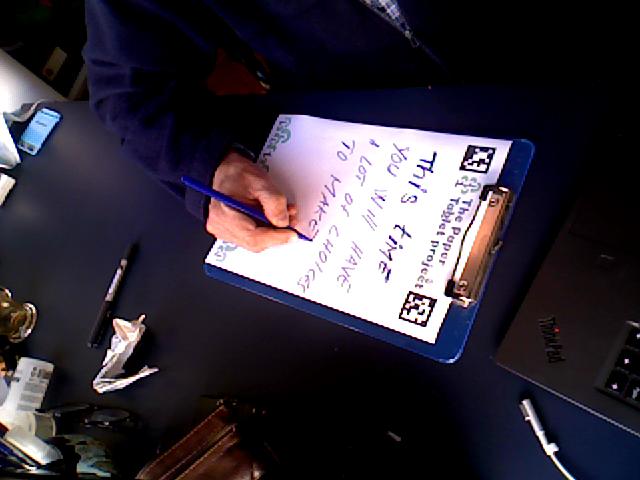 The Paper
Tablet project
This time
YOU WILL HAVE
A LOT OF CHOICES
TO MAKE
ThinkPad